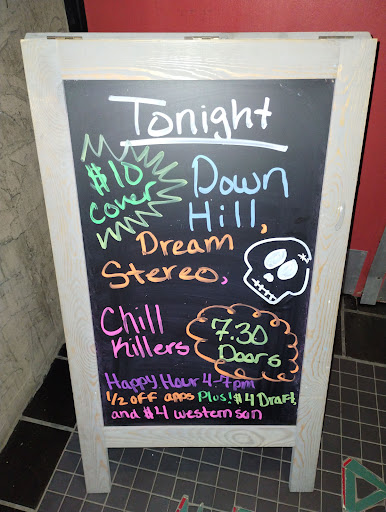 Tonight
$10
Cover
Down
Hill,
Dream
Stereo,
Chill
Killers
7:30
Doors
Happy Hour 4-7pm
1/2 off apps Plus! $4 Draft
and $4 western son